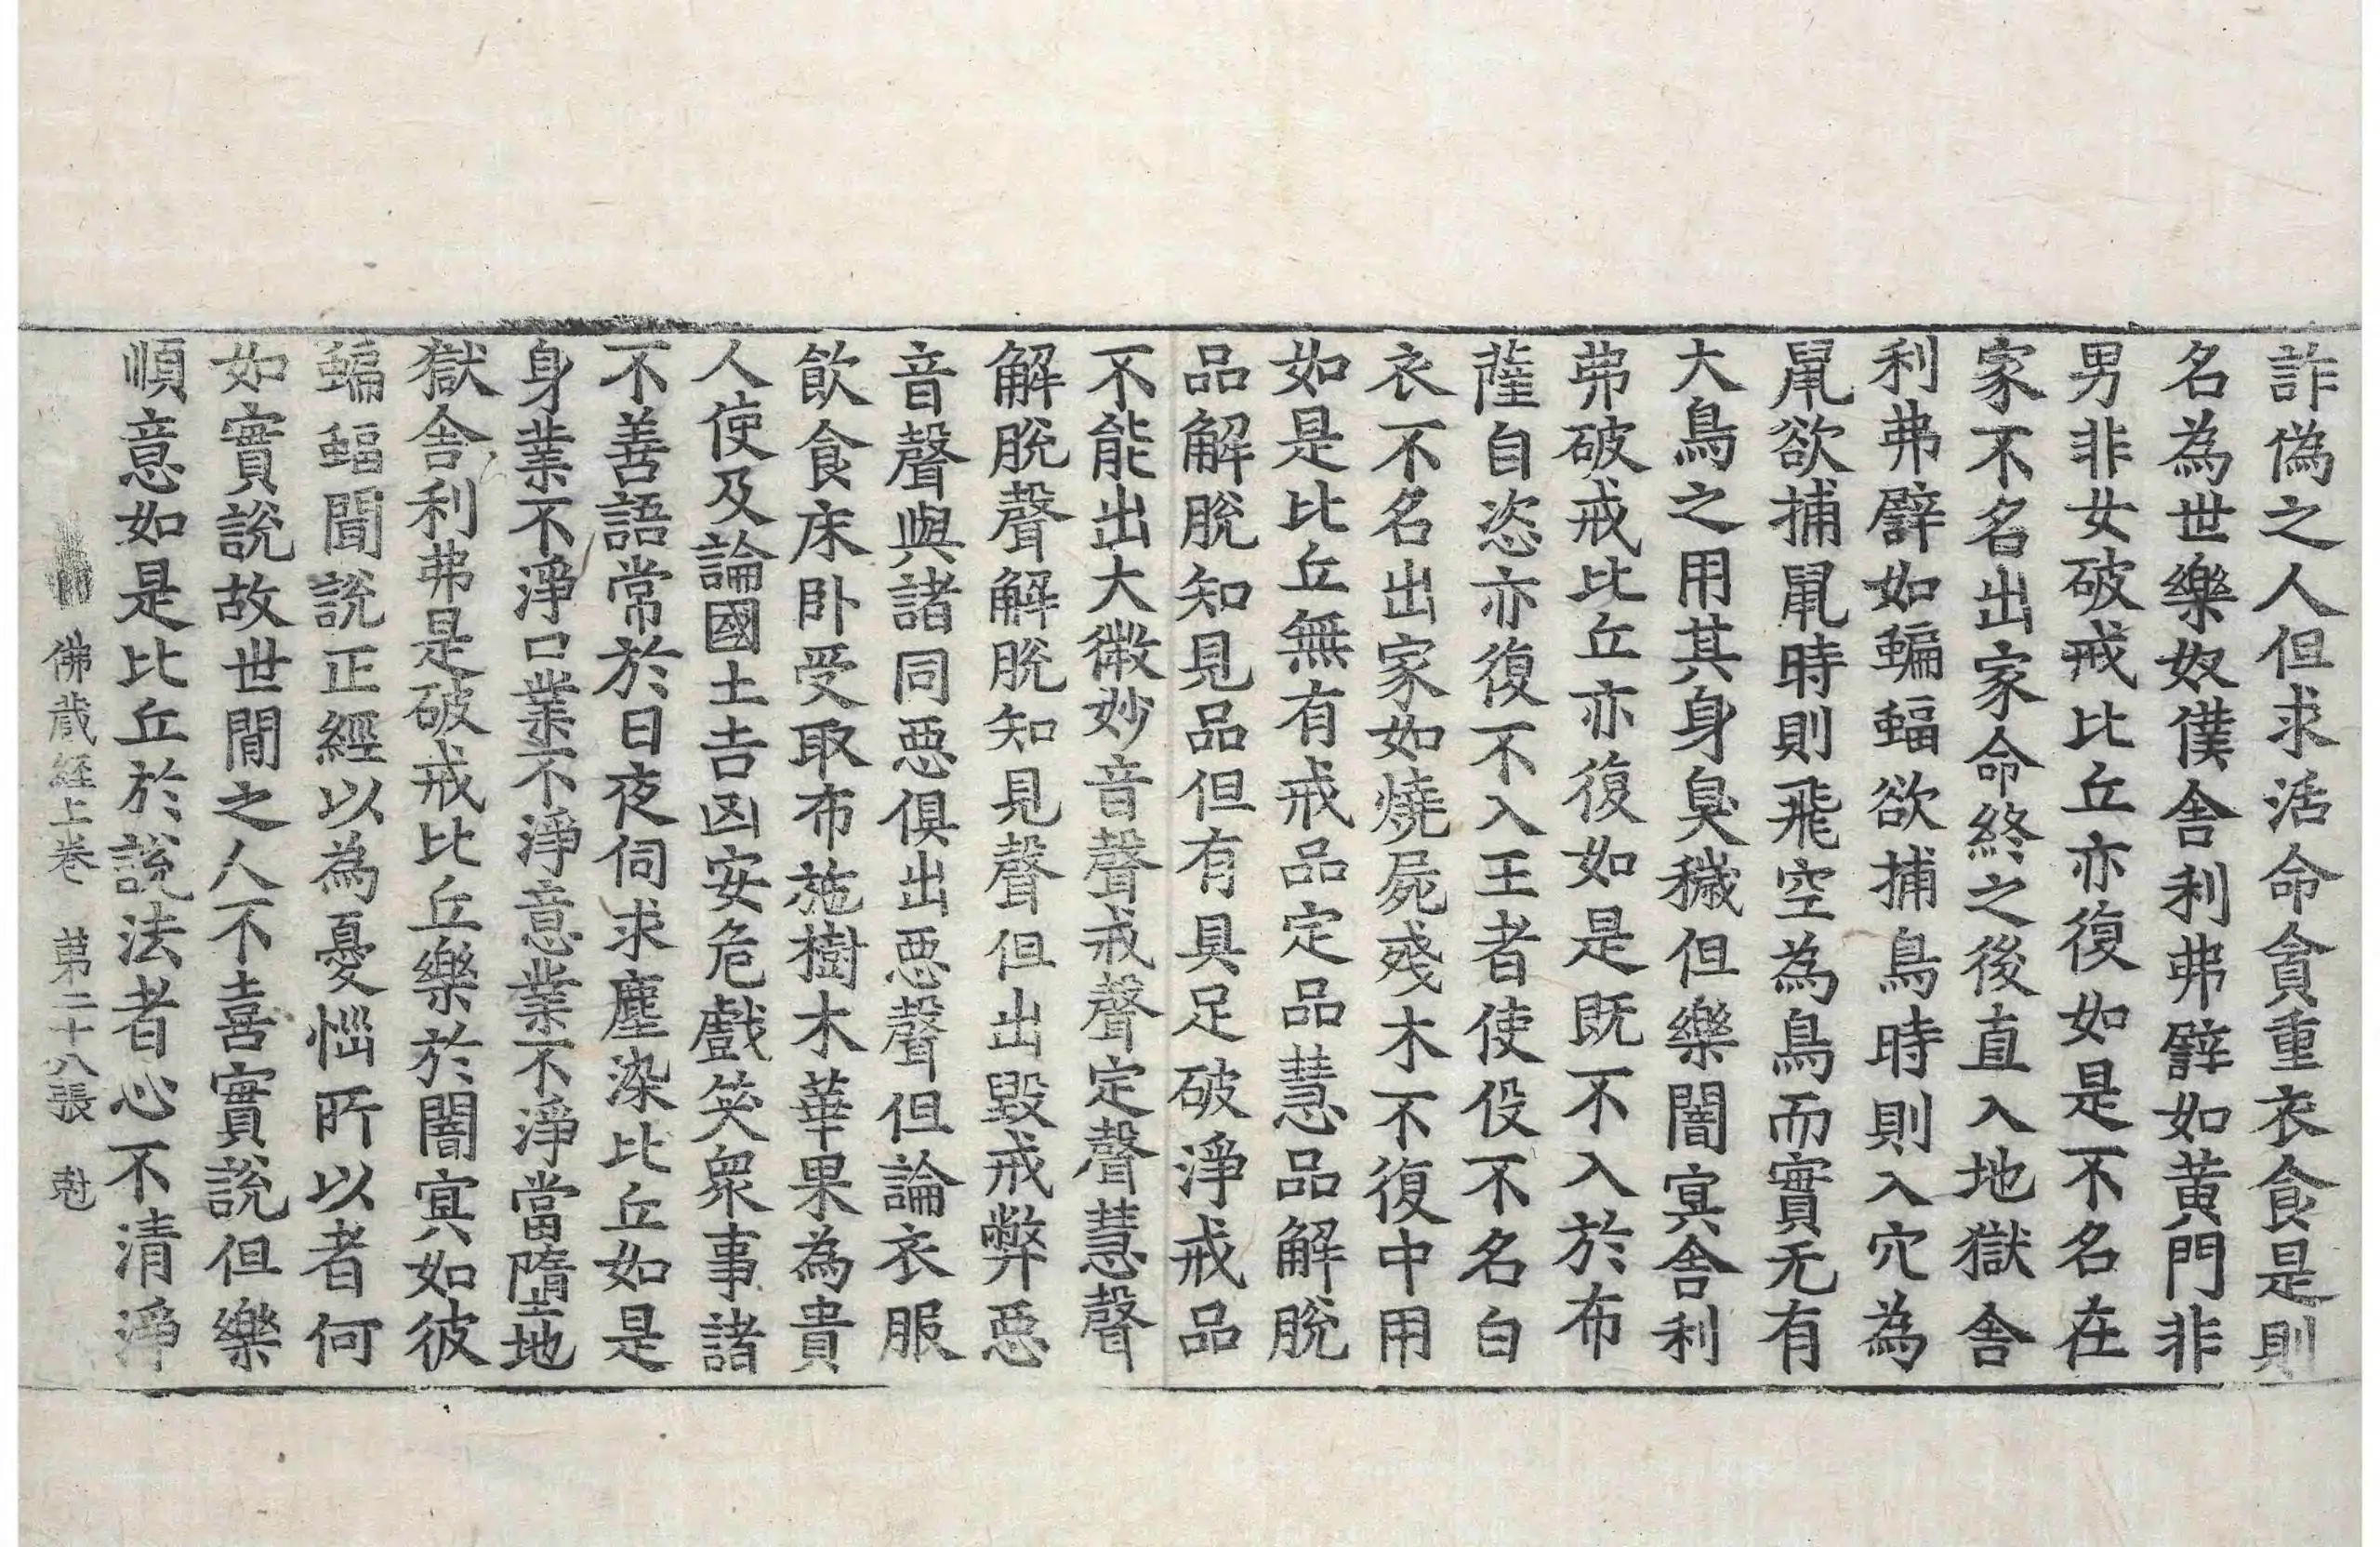 詐偽之人但求活命貪重衣食是則
名為世樂奴僕舍利弗譬如黃門非
男非女破戒比丘亦復如是不名在
家不名出家命終之後直入地獄舍
利弗譬如蝙蝠欲捕鳥時則入穴為
鼠欲捕鼠時則飛空為鳥而實无有
大鳥之用其身臭穢但樂闇冥舍利
弗破戒比丘亦復如是既不入於布
薩自恣亦復不入王者使役不名白
衣不名出家如燒屍殘木不復中用
如是比丘無有戒品定品慧品解脫
品解脫知見品但有具足破淨戒品
不能出大微妙音聲戒聲定聲慧聲
解脫聲解脫知見聲但出毀戒弊惡
音聲與諸同惡俱出惡聲但論衣服
飲食床卧受取布施樹木華果為貴
人使及論國土吉凶安危戲笑衆事諸
不善語常於日夜伺求塵染比丘如是
身業不淨口業不淨意業不淨當墮地
獄舍利弗是破戒比丘樂於闇冥如彼
蝙蝠聞說正經以為憂惱所以者何
如實說故世間之人不喜實說但樂
順意如是比丘於說法者心不清淨
佛藏経上卷 第二十八張 尅